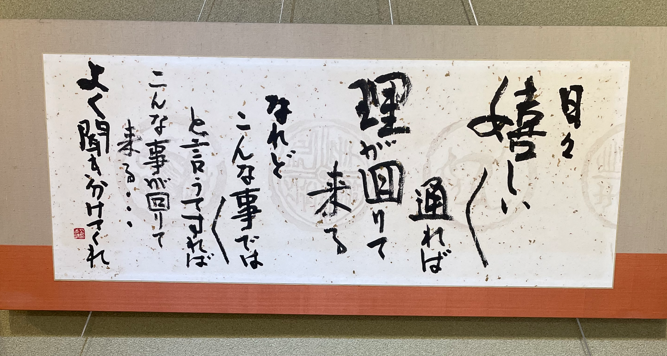 日々
嬉しい〳〵
通れば
理が回りて
来る
なれど
こんな事では〳〵
と言うてすれば
こんな事が回りて
来る・・・
よく聞き分けてくれ